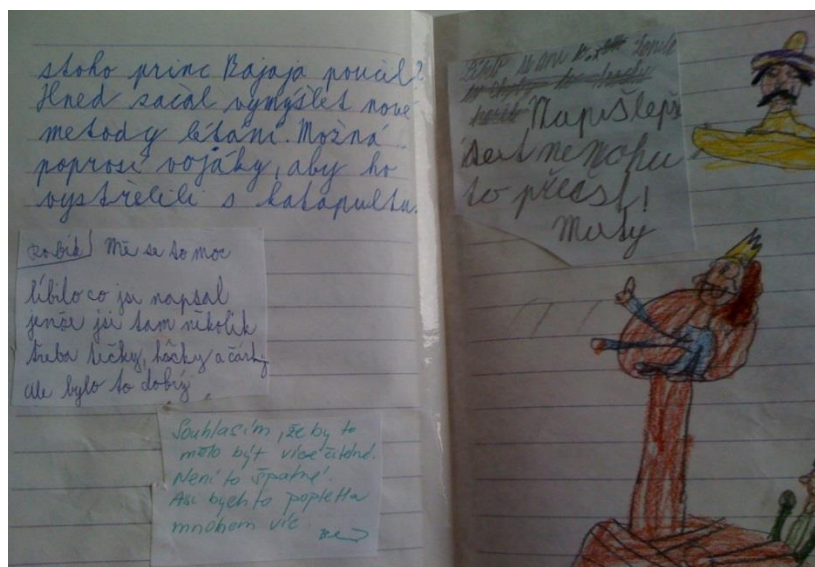 stoho princ Bajaja poučil?
Hned začal vymýšlet nové
metody létání. Možná
poprosí vojáky, aby ho
vystřelili s katapultu.
Mě se to moc
líbilo co jsi napsal
jenže jsi tam několik
třeba tečky, háčky a čárky
ale bylo to dobrý
Souhlasím, že by to
mělo být více čitelné.
Není to špatné.
Asi bych to popletla
mnohem víc.
Napiš lepš
to přečst!
Matý